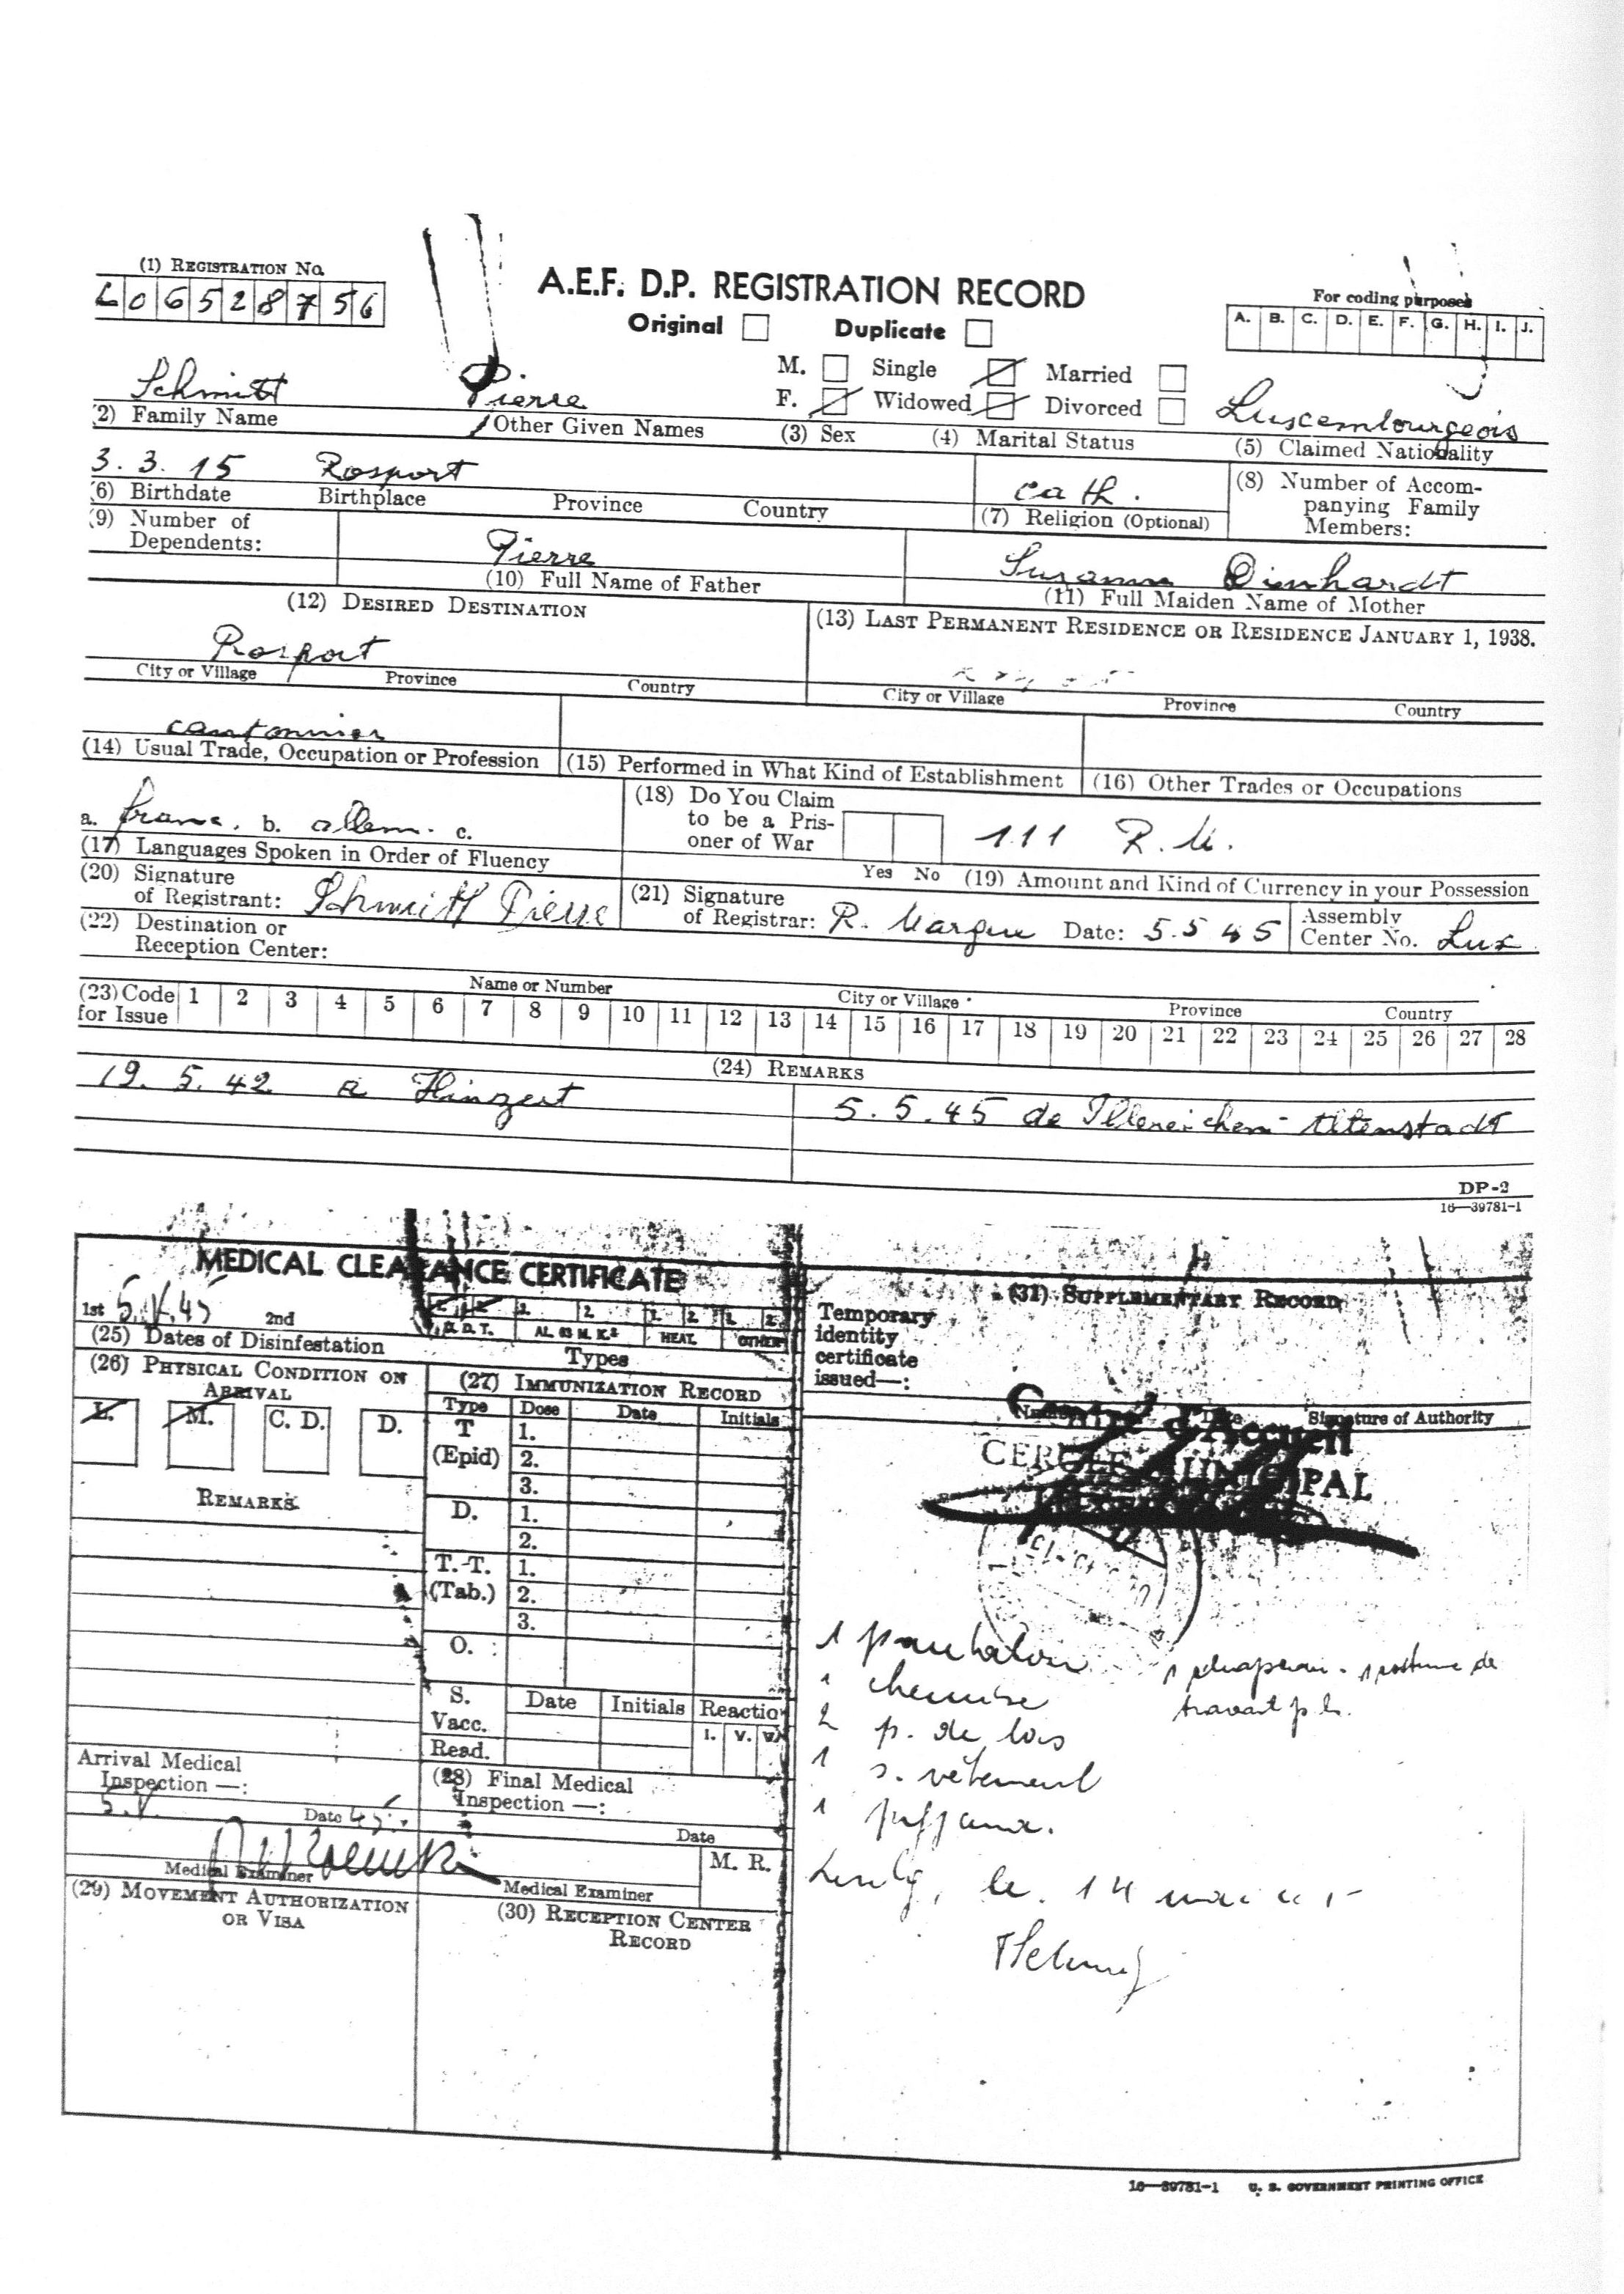 (1) REGISTRATION No.
L 0 6 5 2 8 7 5 6
A.E.F. D.P. REGISTRATION RECORD
Original Duplicate
For coding purposes
A. B. C. D. E. F. G. H. I. J.
M. Single Married
F. Widowed Divorced
Schmitt Pierre Luxembourgeois
(2) Family Name Other Given Names (3) Sex (4) Marital Status (5) Claimed Nationality
3. 3. 15 Rosport cath.
(6) Birthdate Birthplace Province Country (7) Religion (Optional)
(8) Number of Accom-
panying Family
Members:
(9) Number of
Dependents:
Pierre
(10) Full Name of Father
Dienhardt
(11) Full Maiden Name of Mother
(12) DESIRED DESTINATION
Rosport
City or Village Province Country
(13) LAST PERMANENT RESIDENCE OR RESIDENCE JANUARY 1, 1938.
City or Village Province Country
cantonnier
(14) Usual Trade, Occupation or Profession (15) Performed in What Kind of Establishment (16) Other Trades or Occupations
a. franc. b. allem. c.
(17) Languages Spoken in Order of Fluency
(18) Do You Claim
to be a Pris-
oner of War
Yes No
111 R.M.
(19) Amount and Kind of Currency in your Possession
(20) Signature
of Registrant: Schmitt Pierre
(21) Signature
of Registrar: R. Margue Date: 5.5 45
Assembly
Center No. Lux
(22) Destination or
Reception Center:
Name or Number City or Village Province Country
(23) Code
for Issue
1 2 3 4 5 6 7 8 9 10 11 12 13 14 15 16 17 18 19 20 21 22 23 24 25 26 27 28
(24) REMARKS
19. 5. 42 a Hinzert
5. 5. 45 de Illereichen-Altenstadt
DP-2
16—39781-1
MEDICAL CLEARANCE CERTIFICATE
1st 5.V.45 2nd
(25) Dates of Disinfestation
1. 2. 1. 2. 1. 2. 1. 2.
D. D. T. AL. 63 M. K.² HEAT. OTHER
Types
(26) PHYSICAL CONDITION ON
ARRIVAL
L. M. C. D. D.
REMARKS
(27) IMMUNIZATION RECORD
Type Dose Date Initials
T
(Epid)
1.
2.
3.
D.
1.
2.
T.-T.
(Tab.)
1.
2.
3.
O.
S.
Vacc.
Date Initials Reaction
I. V. V.
Read.
Arrival Medical
Inspection —:
5.V. Date 45.
Medical Examiner
(28) Final Medical
Inspection —:
Date
M. R.
Medical Examiner
(29) MOVEMENT AUTHORIZATION
OR VISA
(30) RECEPTION CENTER
RECORD
(31) SUPPLEMENTARY RECORD
Temporary
identity
certificate
issued—:
Number Date Signature of Authority
Centre d'Accueil
CERCLE MUNICIPAL
1 pantalon
1 chemise
2 p. de bas
1 s. vêtement
1 pyjama.
1 chapeau - 1 costume de
travail
le 14 mai
16—39781-1 U. S. GOVERNMENT PRINTING OFFICE